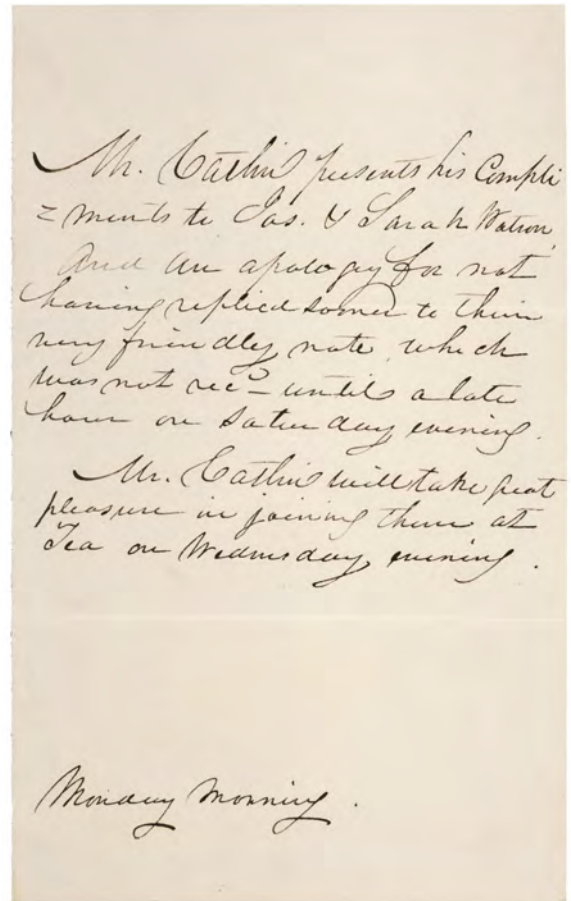 Mr. Catlin presents his Compli
= ments to Jas. & Sarah Watson,
And an apology for not
having replied sooner to their
very friendly note, which
was not rec^d until a late
hour on Saturday evening.
Mr. Catlin will take great
pleasure in joining them at
Tea on Wednesday evening.
Monday Morning.